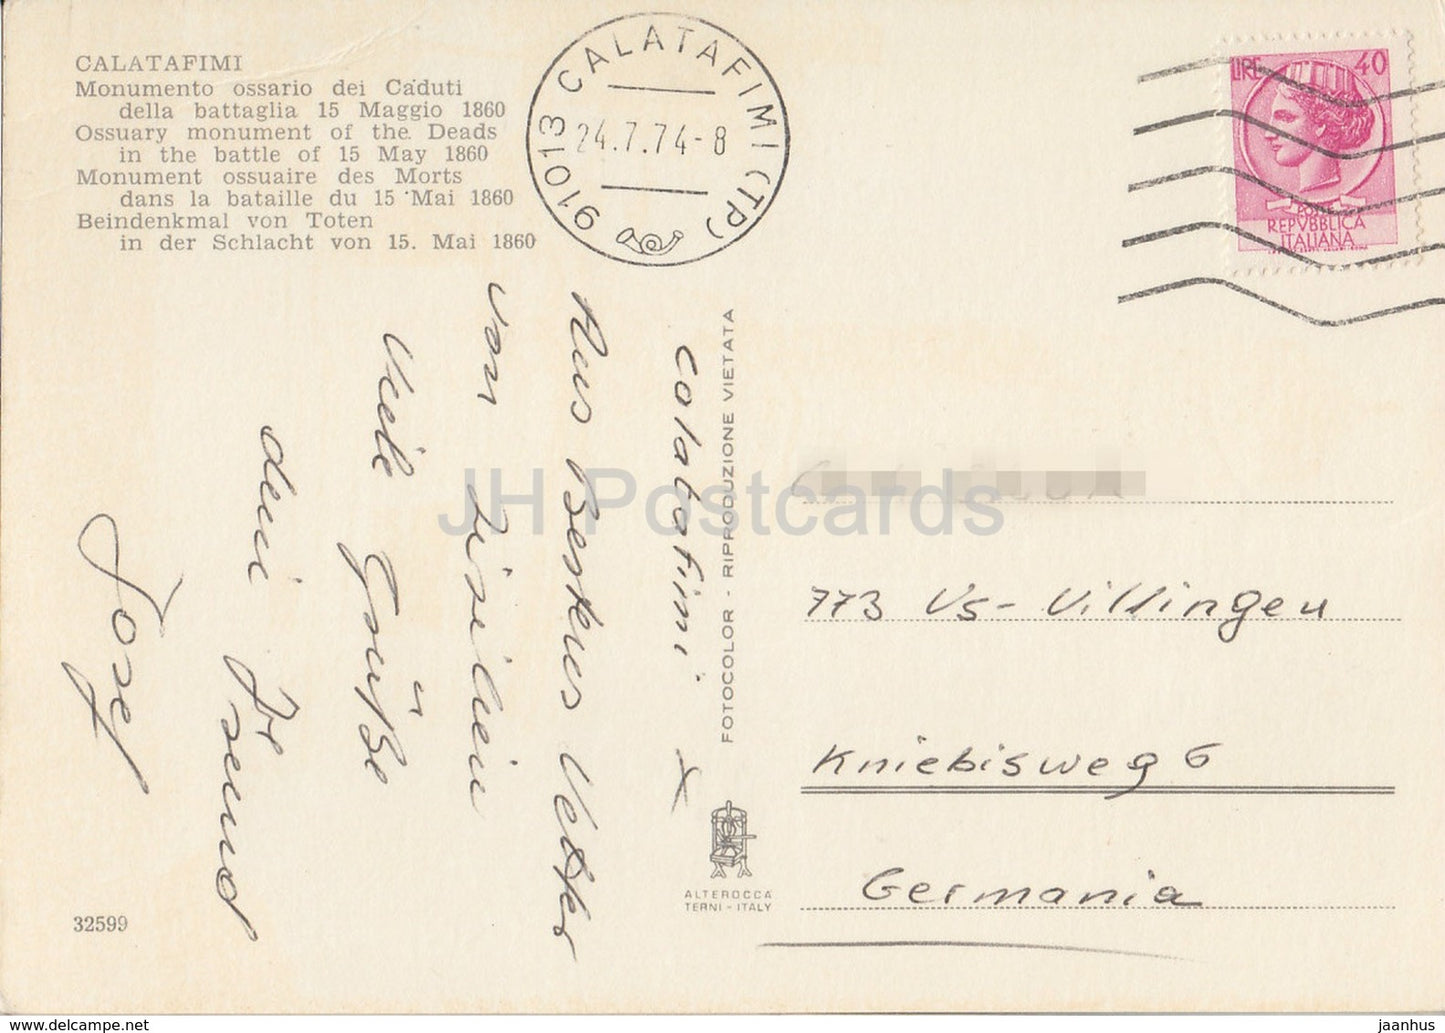 CALATAFIMI
Monumento ossario dei Caduti
della battaglia 15 Maggio 1860
Ossuary monument of the Deads
in the battle of 15 May 1860
Monument ossuaire des Morts
dans la bataille du 15 Mai 1860
Beindenkmal von Toten
in der Schlacht von 15. Mai 1860
91013 CALATAFIMI (TP)
24.7.74-8
LIRE 40
POSTE
REPVBBLICA
ITALIANA
Calatafimi
Aus Bestes Wetter
von Sizilien
Viele Grüße
dein Freund
Josef
FOTOCOLOR - RIPRODUZIONE VIETATA
ALTEROCCA
TERNI - ITALY
773 VS-Villingen
Kniebisweg 6
Germania
32599
JH Postcards
jaanhus @ delcampe.net